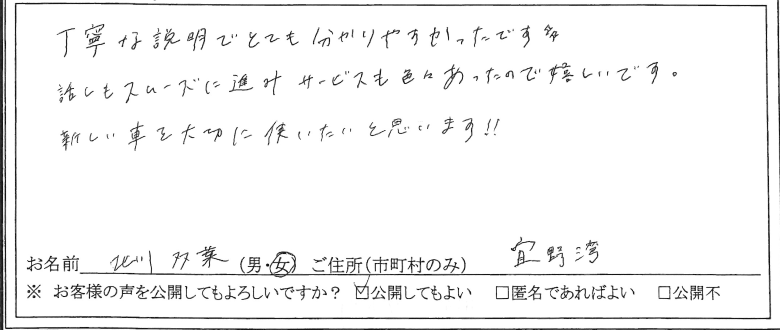 丁寧な説明でとても分かりやすかったです
話しもスムーズに進み サービスも色々あったので嬉しいです。
新しい車を大切に使いたいと思います!!
お名前 北川 双葉 (男・女) ご住所(市町村のみ) 宜野湾
※ お客様の声を公開してもよろしいですか? ☑公開してもよい □匿名であればよい □公開不